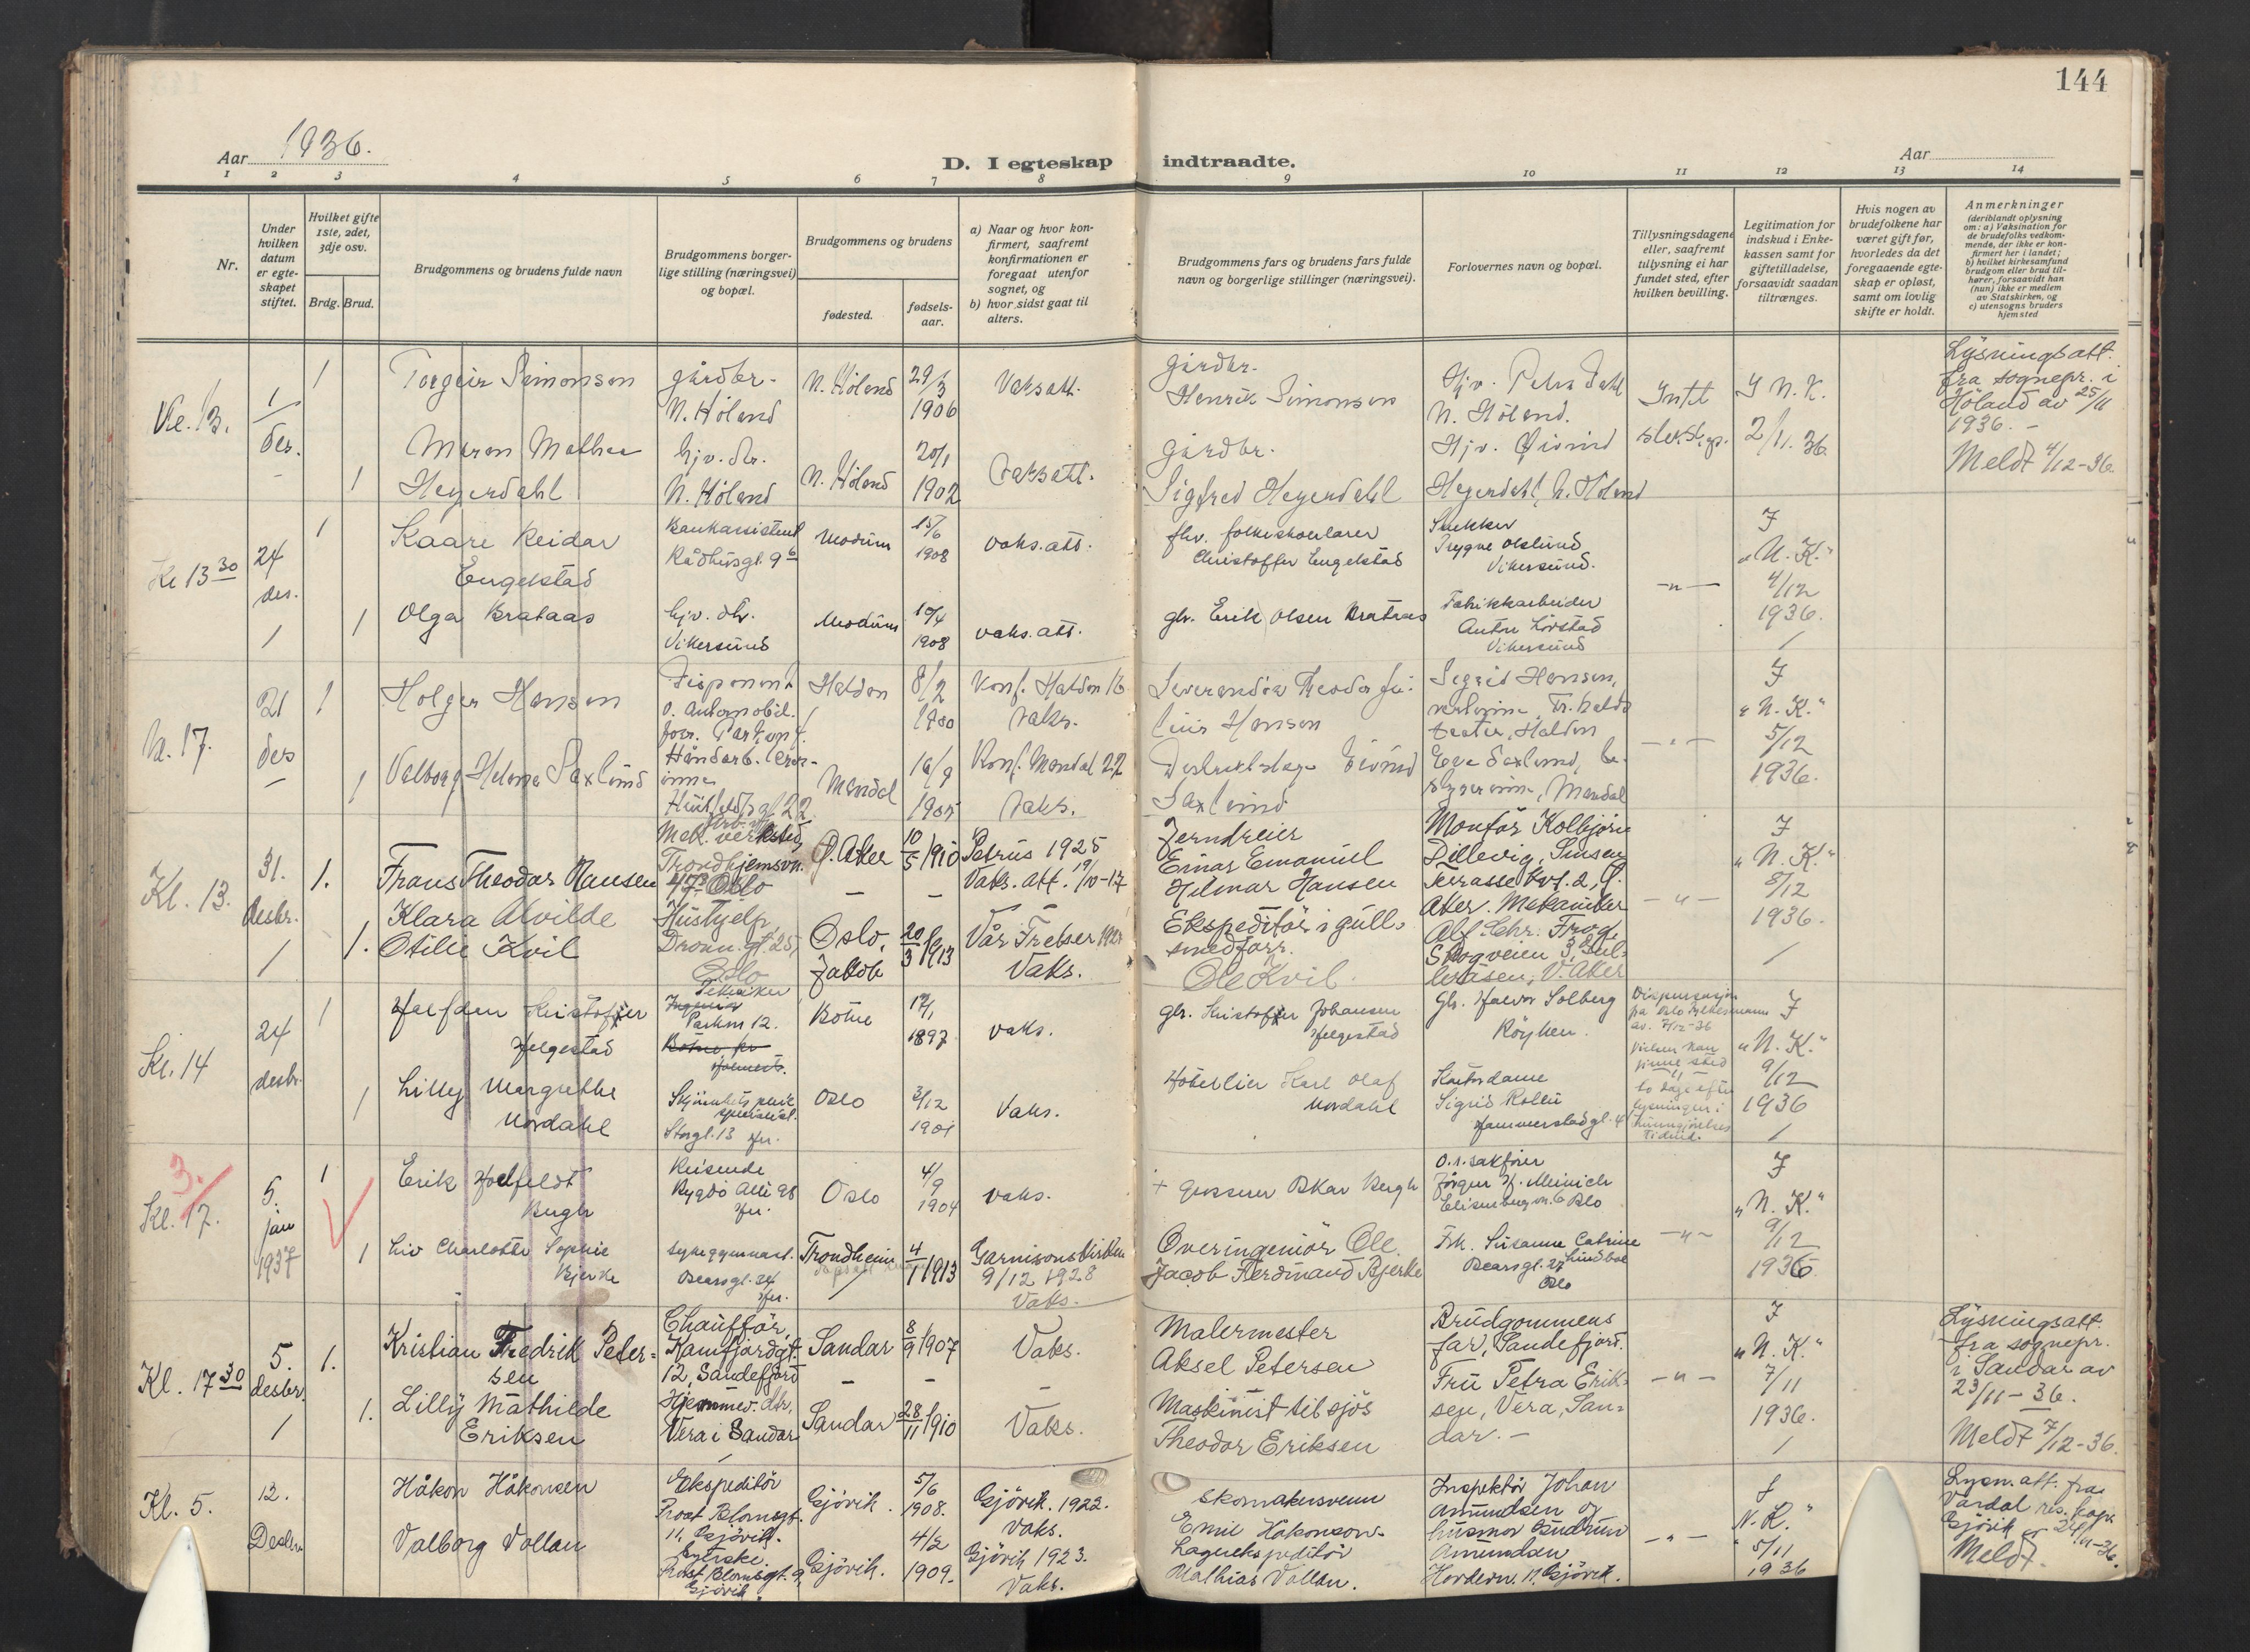 144
Aar 1936.
D. I egteskap indtraadte.
Aar
1 2 3 4 5 6 7 8 9 10 11 12 13 14
Nr.
Under
hvilken
datum
er egte-
skapet
stiftet.
Hvilket gifte
1ste, 2det,
3dje osv.
Brdg. Brud.
Brudgommens og brudens fulde navn
Brudgommens borger-
lige stilling (næringsvei)
og bopæl.
Brudgommens og brudens
fødested.
fødsels-
aar.
a) Naar og hvor kon-
firmert, saafremt
konfirmationen er
foregaat utenfor
sognet, og
b) hvor sidst gaat til
alters.
Brudgommens fars og brudens fars fulde
navn og borgerlige stillinger (næringsvei).
Forlovernes navn og bopæl.
Tillysningsdagene
eller, saafremt
tillysning ei har
fundet sted, efter
hvilken bevilling.
Legitimation for
indskud i Enke-
kassen samt for
giftetilladelse,
forsaavidt saadan
tiltrænges.
Hvis nogen av
brudefolkene har
været gift før,
hvorledes da det
foregaaende egte-
skap er opløst,
samt om lovlig
skifte er holdt.
Anmerkninger
(deriblandt oplysning
om: a) Vaksination for
de brudefolks vedkom-
mende, der ikke er kon-
firmert her i landet;
b) hvilket kirkesamfund
brudgom eller brud til-
hører, forsaavidt han
(hun) ikke er medlem
av Statskirken, og
c) utensogns bruders
hjemsted
Kl. 13.
1
des.
1
Torgeir Simonsen
gårdbr.
N. Höland
N. Höland
29/3
1906
Vaksatt.
gårdbr.
Henrik Simonsen
Hjv. Petra Dahl
N. Höland.
J N. K.
2/11. 36
Lysningsatt.
fra sognepr. i
Höland av 25/11
1936. -
Meldt 4/12-36.
1
Maren Mathea
Hegerdahl
hjv. dtr.
N. Höland
N. Höland
20/1
1902
Vaksatt.
gårdbr.
Sigfred Hegerdahl
Hjv. Øivind
Hegerdahl, N. Höland
Kl 13 30
24
des.
1
Kaare Reidar
Engelstad
Bankassistent
Rådhusgt. 9 b
Modum
15/6
1908
vaks. att.
fhv. folkeskolelærer
Christoffer Engelstad
Snekker
Trygve Olslund
Vikersund.
-"-
J
"N. K."
4/12
1936.
1
Olga Brataas
hjv. dtr.
Vikersund
Modum
10/4
1908
vaks. att.
gbr. Erik Olsen Brataas
Fabrikkarbeider
Anton Lörstad
Vikersund
Kl. 17.
21
des
1
Holger Hansen
Disponent
v. Automobil.
Halden
8/2
1900
Konf. Halden 16
Vaks.
Leverandör Theodor Ju-
lius Hansen
Sigrid Hansen,
teater, Halden
-"-
J
"N. K."
5/12
1936.
1
Valborg Helene Saxlund
Håndarb. lærer-
inne
Huitfeldtsgt 22
Mandal
16/9
1905
Konf. Mandal 22
Vaks.
Distriktslege Eivind
Saxlund
Eva Saxlund, be-
styrerinne, Mandal
Kl. 13.
31.
desbr.
1.
Frans Theodor Hansen
Mek. verksted
Trondhjemsvn.
47 Oslo
Ö. Aker
10/5 1910
Petrus 1925
Vaks. att. 19/10-17
Jerndreier
Einar Emanuel
Hilmar Hansen
Montör Kolbjörn
Dillevig, Sinsen
terrasse bvt. 2, Ö.
Aker. Mekaniker
-"-
J
"N. K."
8/12
1936.
1.
Klara Alvilde
Otilie Kvil
Hushjelp
Dronn. gt. 25,
Oslo
Oslo,
Jakob
20/3 1913
Vår Frelser 1928
Vaks.
Ekspeditör i gull-
smedforr.
Ole Kvil.
Alf Chr. Frog,
Skogveien 3, Gul-
leråsen, V. Aker
Kl. 14
24
desbr.
1
Halfdan Kristoffer
Helgestad
Tekniker
Parkvn 12.
Botne
12/1
1897
vaks.
gbr. Kristoffer Johansen
Helgestad
Gbr. Halvor Solberg
Röyken.
Dispensasjon
fra Oslo fylkesmann
av. 7/12-36
Vielsen kan
finne sted
to dage efter
lysningen i
kunngjörelses
tidende.
J
"N. K."
9/12
1936
1
Lilly Margrethe
Nordahl
Skjönnhetspleie
spesialist.
Storgt. 13 her.
Oslo
3/12
1901
Vaks.
Hotelleier Karl Olaf
Nordahl
Kontordame
Sigrid Kollin
Hammerstadgt. 4
3.
Kl. 17.
5.
jan
1937
1
Erik Hoelfeldt
Bugh
Reisende
Bygdö Allé 98
her.
Oslo
4/9
1904
vaks.
+ grosserer Oskar Bergh
O.r.sakförer
Jörgen H. Meinich
Elisenbergvn. 6 Oslo
-"-
J
"N. K."
9/12
1936
1
Liv Charlotte Sophie
Bjerke
sykegymnast.
Oscarsgt. 24
her.
Trondheim
4/1 1913
Garnisonskirken
9/12 1928
Vaks.
Overingeniör Ole
Jacob Ferdinand Bjerke
Frk. Susanne Catrine
Lindboe
Oscarsgt. 27
Oslo
Kl. 17 30
5.
desbr.
1.
Kristian Fredrik Peter-
sen
Chaufför,
Kamfjordgt.
12, Sandefjord
Sandar
8/9 1907
Vaks.
Malermester
Aksel Petersen
Brudgommens
far, Sandefjord.
-"-
J
"N. K."
7/11
1936.
Lysningsatt.
fra sognepr.
i Sandar av
23/11-36.
Meldt 7/12-36.
1.
Lilly Mathilde
Eriksen
Hjemmev. dtr.
Vera i Sandar
Sandar
28/11 1910
Vaks.
Maskinist tilsjös
Theodor Eriksen
Fru Petra Erik-
sen, Vera, San-
dar. -
Kl. 5.
12.
Desbr.
Håkon Håkonsen
Ekspeditör
Prost Blomsgt.
11, Gjövik.
Gjövik.
5/6
1908.
Gjövik. 1922.
Vaks.
Skomakersvenn
Emil Håkonsen.
Inspektör Johan
Amundsen og
husmor Gudrun
Amundsen
Hordern. 11, Gjövik.
-"-
J
N. K."
5/11
1936
Lysn. att. fra
Vardal res. kap.
Gjövik av 24/11-36.
Meldt.
Valborg Vollan
Syerske.
Prost Blomsgt. 9,
Gjövik.
Gjövik.
4/2
1909.
Gjövik 1923.
Vaks.
Lagerekspeditör
Mathias Vollan.